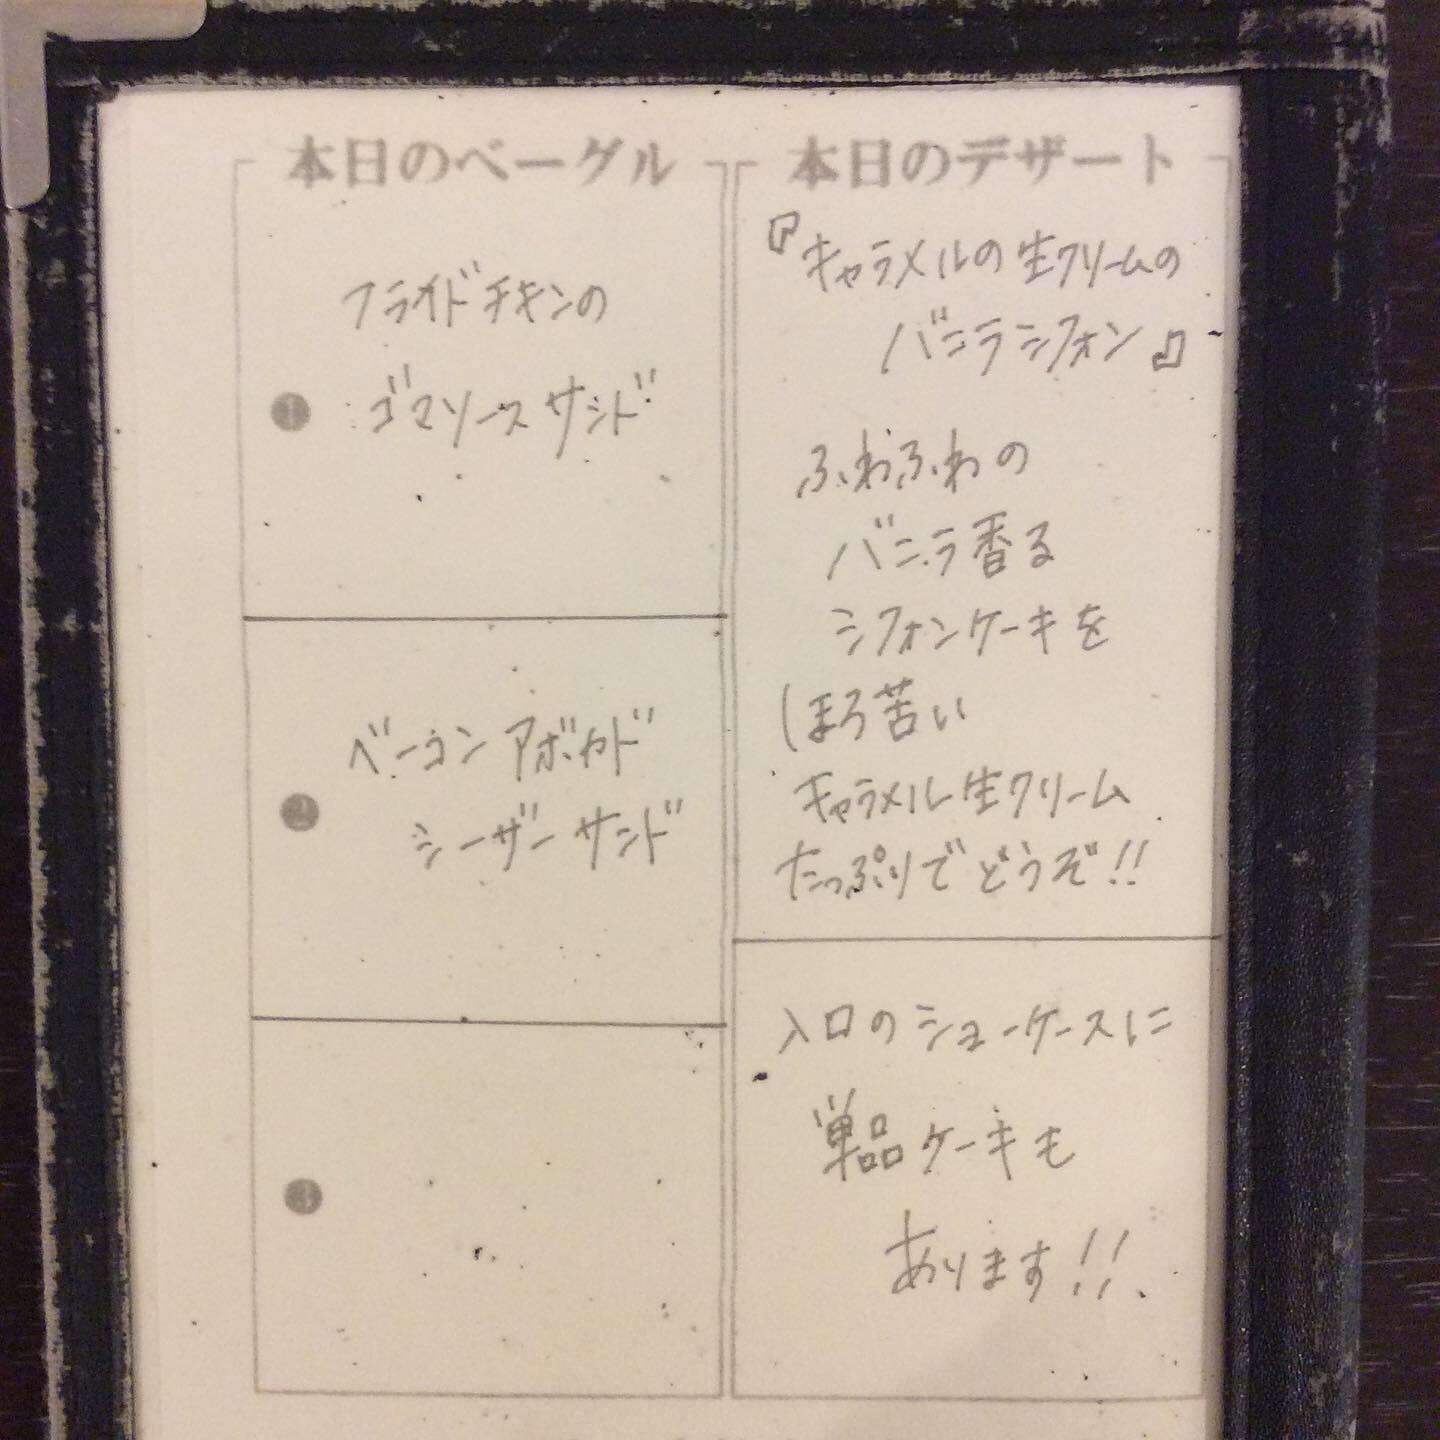 本日のベーグル
フライドチキンの
❶ ゴマソースサンド
ベーコンアボカド
❷ シーザーサンド
❸
本日のデザート
『キャラメルの生クリームの
バニラシフォン』
ふわふわの
バニラ香る
シフォンケーキを
ほろ苦い
キャラメル生クリーム
たっぷりでどうぞ!!
入口のショーケースに
単品ケーキも
あります!!